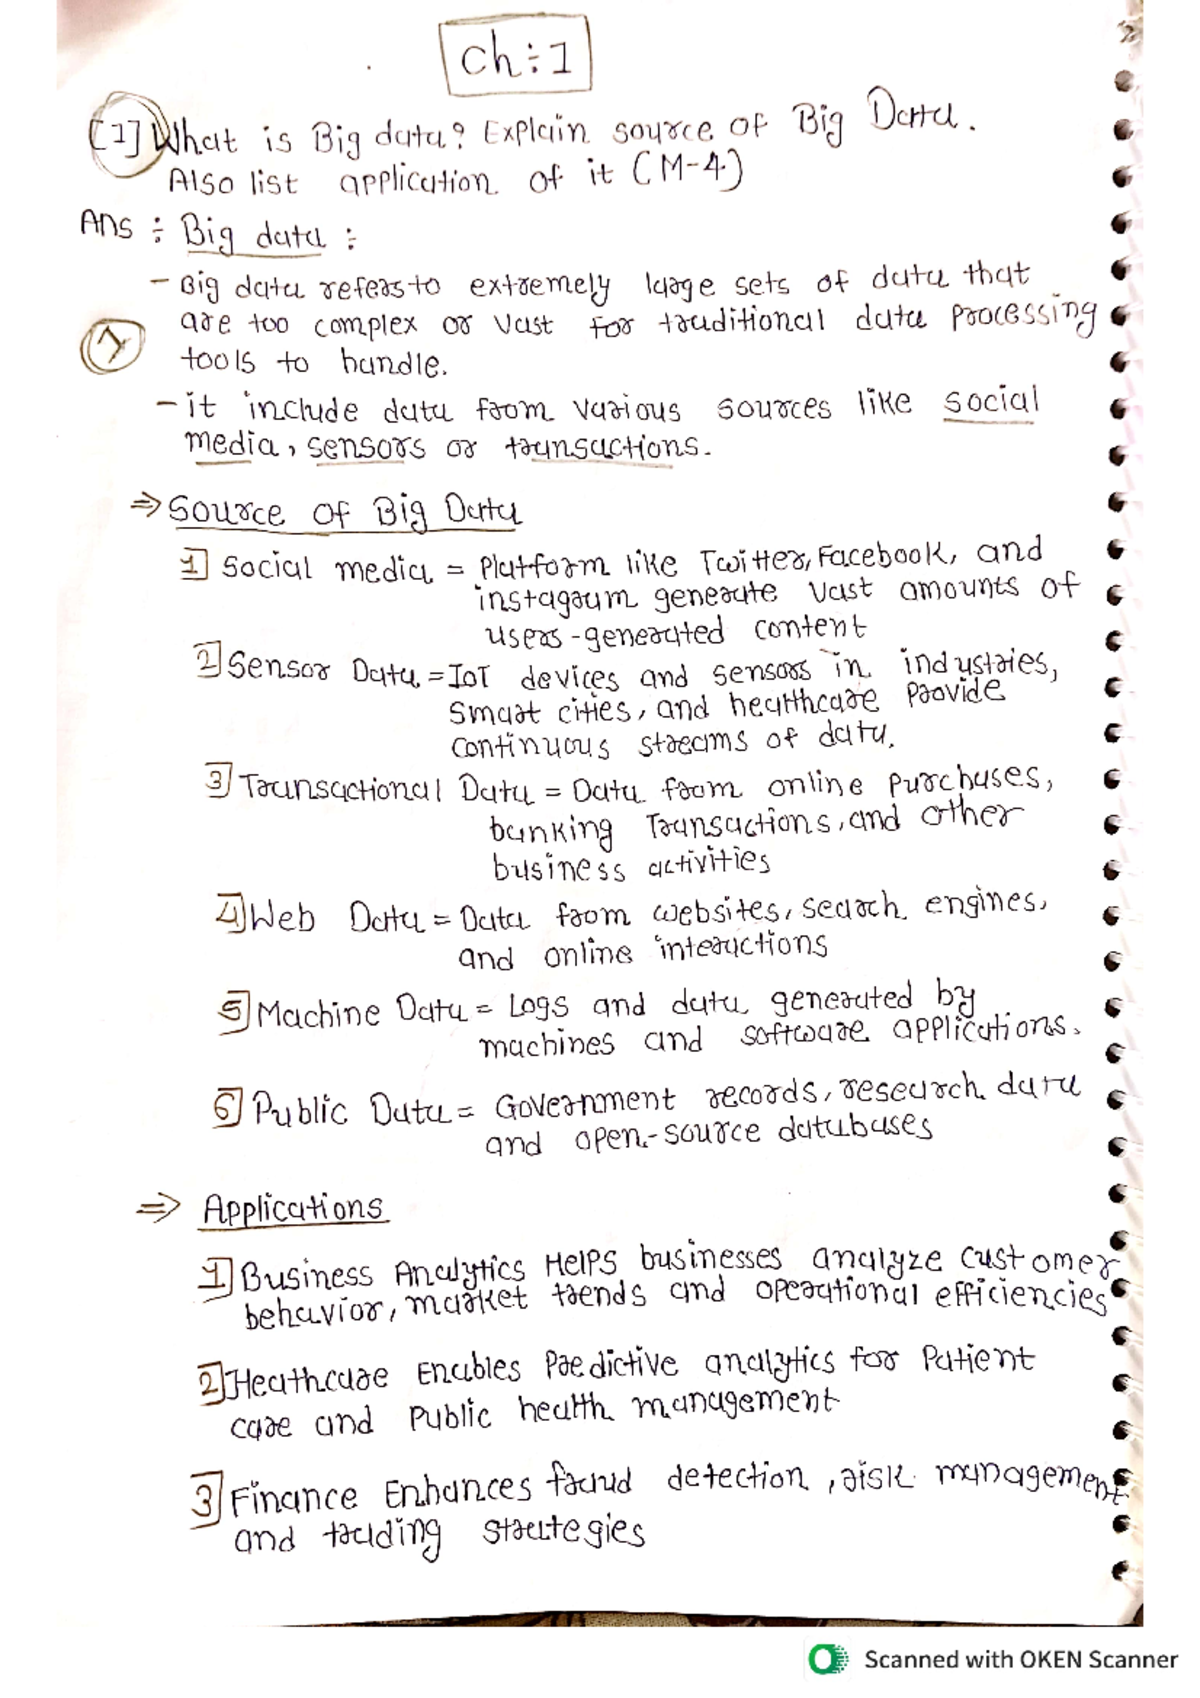 Ch÷1
[1] What is Big data? Explain source of Big Data.
Also list application of it (M-4)
Ans ÷ Big data ÷
- Big data refers to extremely large sets of data that
are too complex or vast for traditional data processing
tools to handle.
- it include data from various sources like social
media, sensors or transactions.
⇒ Source of Big Data
1] Social media = Platform like Twitter, Facebook, and
instagram generate vast amounts of
users-generated content
2] Sensor Data = IoT devices and sensors in industries,
smart cities, and healthcare provide
continuous streams of data.
3] Transactional Data = Data from online purchases,
banking Transactions, and other
business activities
4] Web Data = Data from websites, search engines,
and online interactions
5] Machine Data = Logs and data generated by
machines and software applications.
6] Public Data = Government records, research data
and open-source databases
⇒ Applications
1] Business Analytics Helps businesses analyze customer
behavior, market trends and operational efficiencies
2] Heathcare Enables Predictive analytics for Patient
care and Public health management
3] Finance Enhances fraud detection, risk management
and trading strategies
Scanned with OKEN Scanner